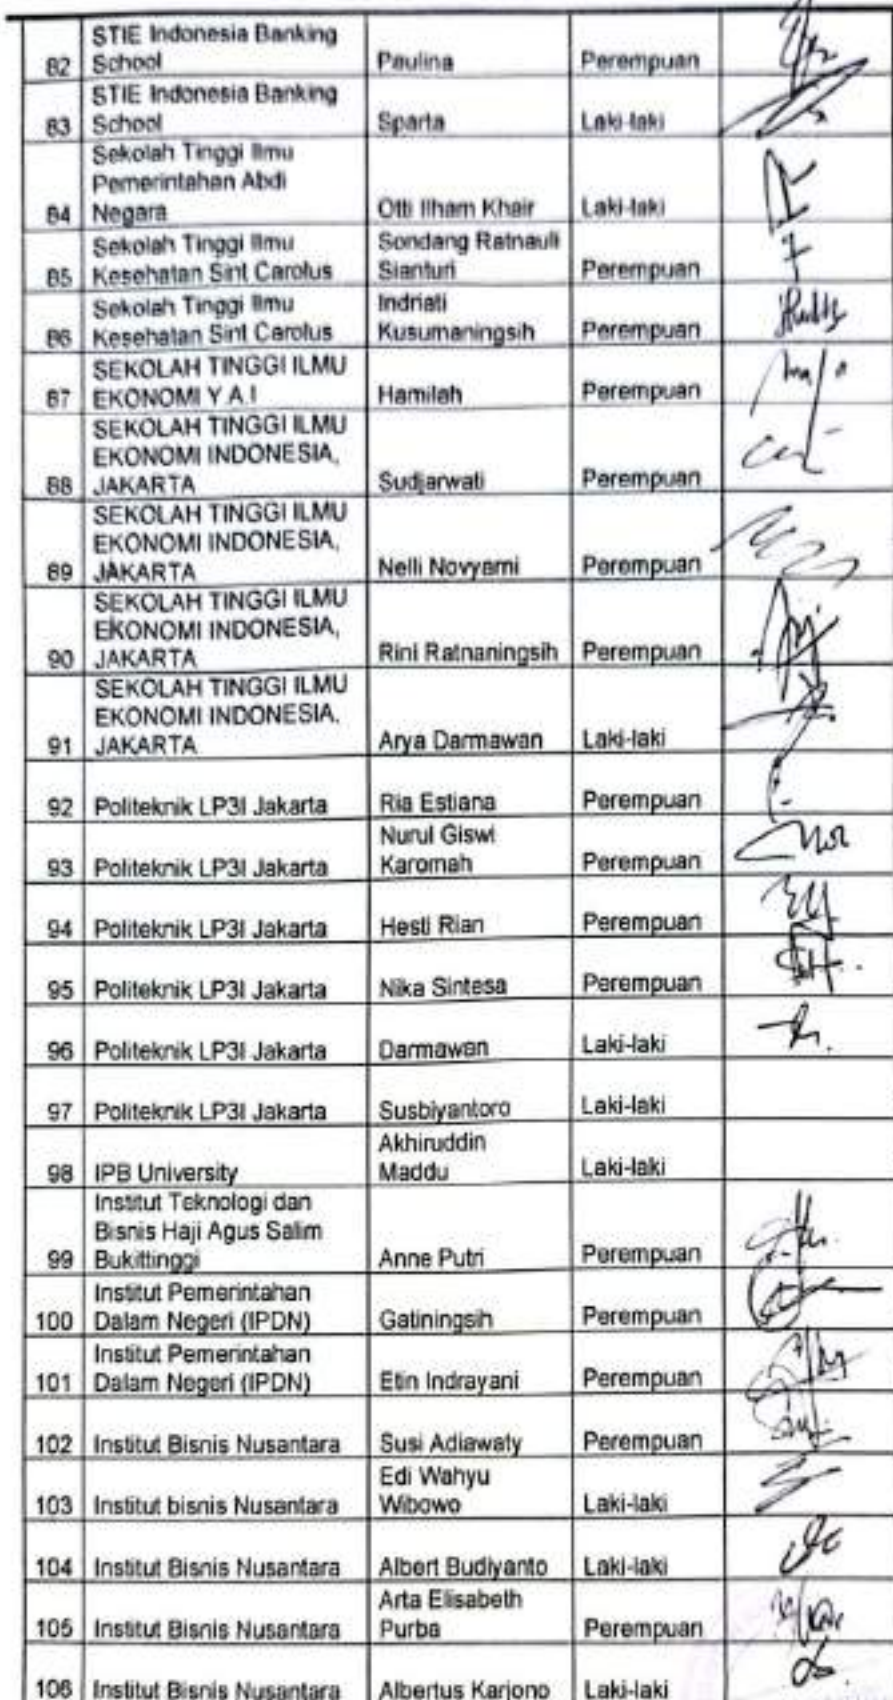 82 STIE Indonesia Banking School Paulina Perempuan
83 STIE Indonesia Banking School Sparta Laki-laki
84 Sekolah Tinggi Ilmu Pemerintahan Abdi Negara Otti Ilham Khair Laki-laki
85 Sekolah Tinggi Ilmu Kesehatan Sint Carolus Sondang Ratnauli Sianturi Perempuan
86 Sekolah Tinggi Ilmu Kesehatan Sint Carolus Indriati Kusumaningsih Perempuan
87 SEKOLAH TINGGI ILMU EKONOMI Y A I Hamilah Perempuan
88 SEKOLAH TINGGI ILMU EKONOMI INDONESIA, JAKARTA Sudjarwati Perempuan
89 SEKOLAH TINGGI ILMU EKONOMI INDONESIA, JAKARTA Nelli Novyarni Perempuan
90 SEKOLAH TINGGI ILMU EKONOMI INDONESIA, JAKARTA Rini Ratnaningsih Perempuan
91 SEKOLAH TINGGI ILMU EKONOMI INDONESIA, JAKARTA Arya Darmawan Laki-laki
92 Politeknik LP3I Jakarta Ria Estiana Perempuan
93 Politeknik LP3I Jakarta Nurul Giswi Karomah Perempuan
94 Politeknik LP3I Jakarta Hesti Rian Perempuan
95 Politeknik LP3I Jakarta Nika Sintesa Perempuan
96 Politeknik LP3I Jakarta Darmawan Laki-laki
97 Politeknik LP3I Jakarta Susbiyantoro Laki-laki
98 IPB University Akhiruddin Maddu Laki-laki
99 Institut Teknologi dan Bisnis Haji Agus Salim Bukittinggi Anne Putri Perempuan
100 Institut Pemerintahan Dalam Negeri (IPDN) Gatiningsih Perempuan
101 Institut Pemerintahan Dalam Negeri (IPDN) Etin Indrayani Perempuan
102 Institut Bisnis Nusantara Susi Adiawaty Perempuan
103 Institut bisnis Nusantara Edi Wahyu Wibowo Laki-laki
104 Institut Bisnis Nusantara Albert Budiyanto Laki-laki
105 Institut Bisnis Nusantara Arta Elisabeth Purba Perempuan
106 Institut Bisnis Nusantara Albertus Karjono Laki-laki